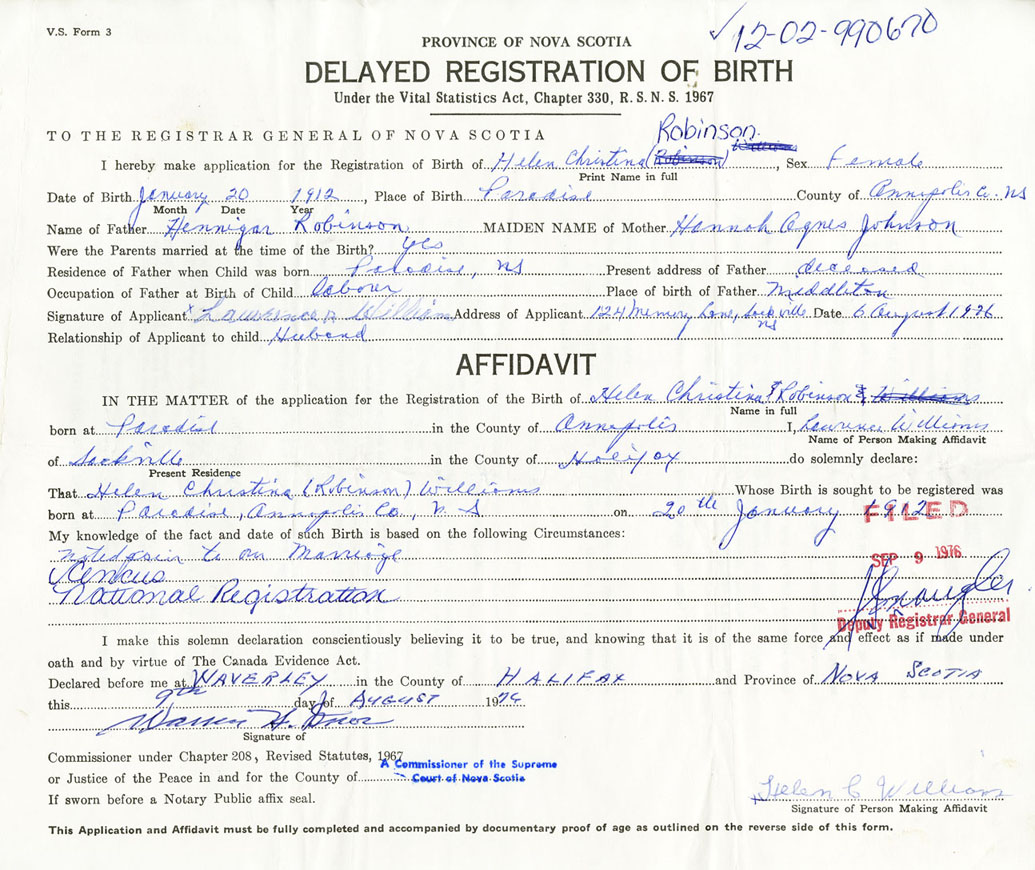 V.S. Form 3
✓12-02-990670
PROVINCE OF NOVA SCOTIA
DELAYED REGISTRATION OF BIRTH
Under the Vital Statistics Act, Chapter 330, R. S. N. S. 1967
TO THE REGISTRAR GENERAL OF NOVA SCOTIA
Robinson
I hereby make application for the Registration of Birth of Helen Christina (Robinson) Williams, Sex Female
Print Name in full
Date of Birth January 20 1912, Place of Birth Paradise County of Annapolis Co. NS
Month Date Year
Name of Father Hennigar Robinson MAIDEN NAME of Mother Hannah Agnes Johnson
Were the Parents married at the time of the Birth? yes
Residence of Father when Child was born Paradise, NS Present address of Father deceased
Occupation of Father at Birth of Child Labour Place of birth of Father Middleton
Signature of Applicant x Lawrence Williams Address of Applicant 124 Memory Lane, Sackville NS Date 6 August 1976
Relationship of Applicant to child Huband
AFFIDAVIT
IN THE MATTER of the application for the Registration of the Birth of Helen Christina Robinson Williams
Name in full
born at Paradise in the County of Annapolis I, Lawrence Williams
Name of Person Making Affidavit
of Sackville in the County of Halifax do solemnly declare:
Present Residence
That Helen Christina (Robinson) Williams Whose Birth is sought to be registered was
born at Paradise, Annapolis Co, N S on 20 th January 1912
FILED
My knowledge of the fact and date of such Birth is based on the following Circumstances:
to our Marriage
SEP 9 1976
Cencus
National Registration
Deputy Registrar General
I make this solemn declaration conscientiously believing it to be true, and knowing that it is of the same force and effect as if made under
oath and by virtue of The Canada Evidence Act.
Declared before me at WAVERLEY in the County of HALIFAX and Province of NOVA SCOTIA
this 9th day of AUGUST 1976
Signature of
Commissioner under Chapter 208, Revised Statutes, 1967
A Commissioner of the Supreme
or Justice of the Peace in and for the County of Court of Nova Scotia
Helen C Williams
If sworn before a Notary Public affix seal.
Signature of Person Making Affidavit
This Application and Affidavit must be fully completed and accompanied by documentary proof of age as outlined on the reverse side of this form.